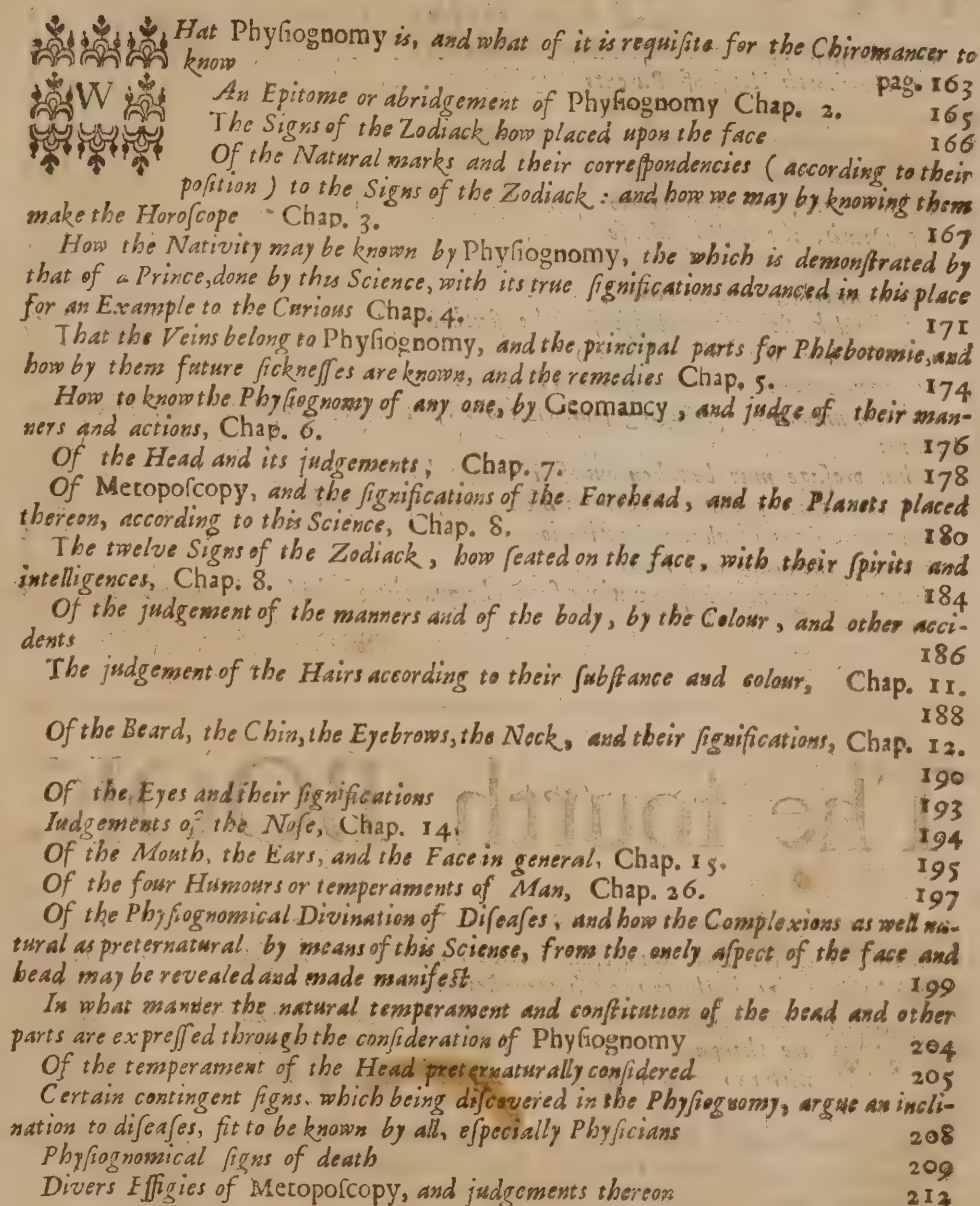 WHat Phyſiognomy is, and what of it is requiſite for the Chiromancer to
know pag. 163
An Epitome or abridgement of Phyſiognomy Chap. 2. 165
The Signs of the Zodiack how placed upon the face 166
Of the Natural marks and their correſpondencies ( according to their
poſition ) to the Signs of the Zodiack : and how we may by knowing them
make the Horoſcope Chap. 3. 167
How the Nativity may be known by Phyſiognomy, the which is demonſtrated by
that of a Prince, done by this Science, with its true ſignifications advanced in this place
for an Example to the Curious Chap. 4. 171
That the Veins belong to Phyſiognomy, and the principal parts for Phlebotomie, and
how by them future ſickneſſes are known, and the remedies Chap. 5. 174
How to know the Phyſiognomy of any one, by Geomancy , and judge of their man-
ners and actions, Chap. 6. 176
Of the Head and its judgements ; Chap. 7. 178
Of Metopoſcopy, and the ſignifications of the Forehead , and the Planets placed
thereon, according to this Science, Chap. 8. 180
The twelve Signs of the Zodiack , how ſeated on the face , with their ſpirits and
intelligences, Chap. 8. 184
Of the judgement of the manners and of the body , by the Colour , and other acci-
dents 186
The judgement of the Hairs according to their ſubſtance and colour, Chap. 11.
188
Of the Beard, the Chin, the Eyebrows, the Neck, and their ſignifications, Chap. 12.
190
Of the Eyes and their ſignifications 193
Iudgements of the Noſe, Chap. 14. 194
Of the Mouth, the Ears, and the Face in general, Chap. 15. 195
Of the four Humours or temperaments of Man, Chap. 26. 197
Of the Phyſiognomical Divination of Diſeaſes , and how the Complexions as well na-
tural as preternatural by means of this Science, from the onely aſpect of the face and
head may be revealed and made manifeſt 199
In what manner the natural temperament and conſtitution of the head and other
parts are expreſſed through the conſideration of Phyſiognomy 204
Of the temperament of the Head preternaturally conſidered 205
Certain contingent ſigns, which being diſcovered in the Phyſiognomy, argue an incli-
nation to diſeaſes, fit to be known by all, eſpecially Phyſicians 208
Phyſiognomical ſigns of death 209
Divers Effigies of Metopoſcopy, and judgements thereon 212